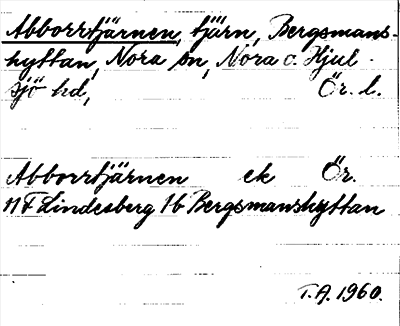 Abborrtjärnen, tjärn, Bergsmans-
hyttan, Nora sn, Nora o. Hjul-
sjö hd, Ör. l.
Abborrtjärnen ek Ör.
11 F Lindesberg 1b Bergsmanshyttan
T.A. 1960.